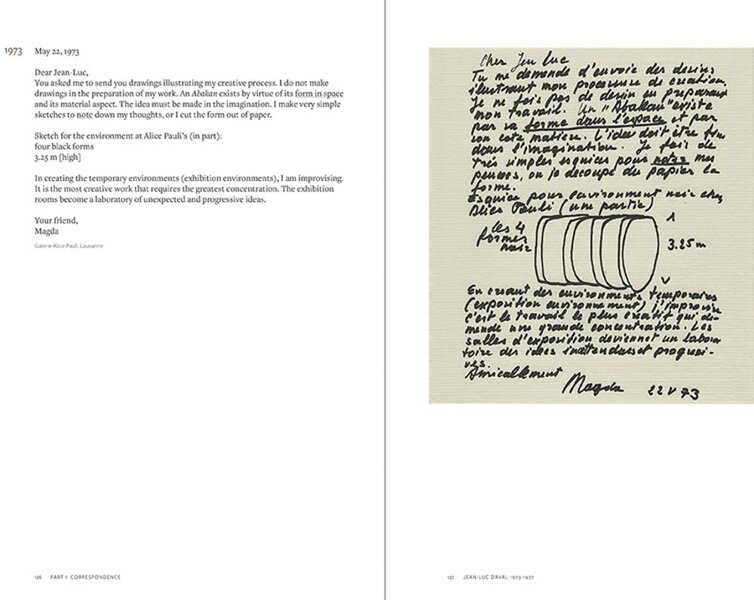 1973
May 22, 1973
Dear Jean-Luc,
You asked me to send you drawings illustrating my creative process. I do not make
drawings in the preparation of my work. An Abakan exists by virtue of its form in space
and its material aspect. The idea must be made in the imagination. I make very simple
sketches to note down my thoughts, or I cut the form out of paper.
Sketch for the environment at Alice Pauli's (in part):
four black forms
3.25 m [high]
In creating the temporary environments (exhibition environments), I am improvising.
It is the most creative work that requires the greatest concentration. The exhibition
rooms become a laboratory of unexpected and progressive ideas.
Your friend,
Magda
Galerie Alice Pauli, Lausanne
126 PART I: CORRESPONDENCE
Cher Jen Luc
Tu me demande d'envoie des desins
illustrant mon processuse de creation.
Je ne fais pas de desin en preparant
mon travail. Un "Abakan" existe
par sa forme dans l'espace et par
son coté matière. L'idee doit être
dans l'imagination. Je fais de
très simples esquices pour noter mes
pensees, ou je decoupe du papier la
forme.
Esquice pour environment noir chez
Alice Pauli (une partie)
les 4
formes
noir
3.25 m
En creant des environments temporaires
(exposition environnement) j'improvise
C'est le travail le plus creatif qui de-
mende une grande concentration. Les
salles d'exposition deviennet un labora
toire des idees inattendues et progresi-
ves.
Amicallement
Magda 22 V 73
127 JEAN-LUC DAVAL 1973-1977